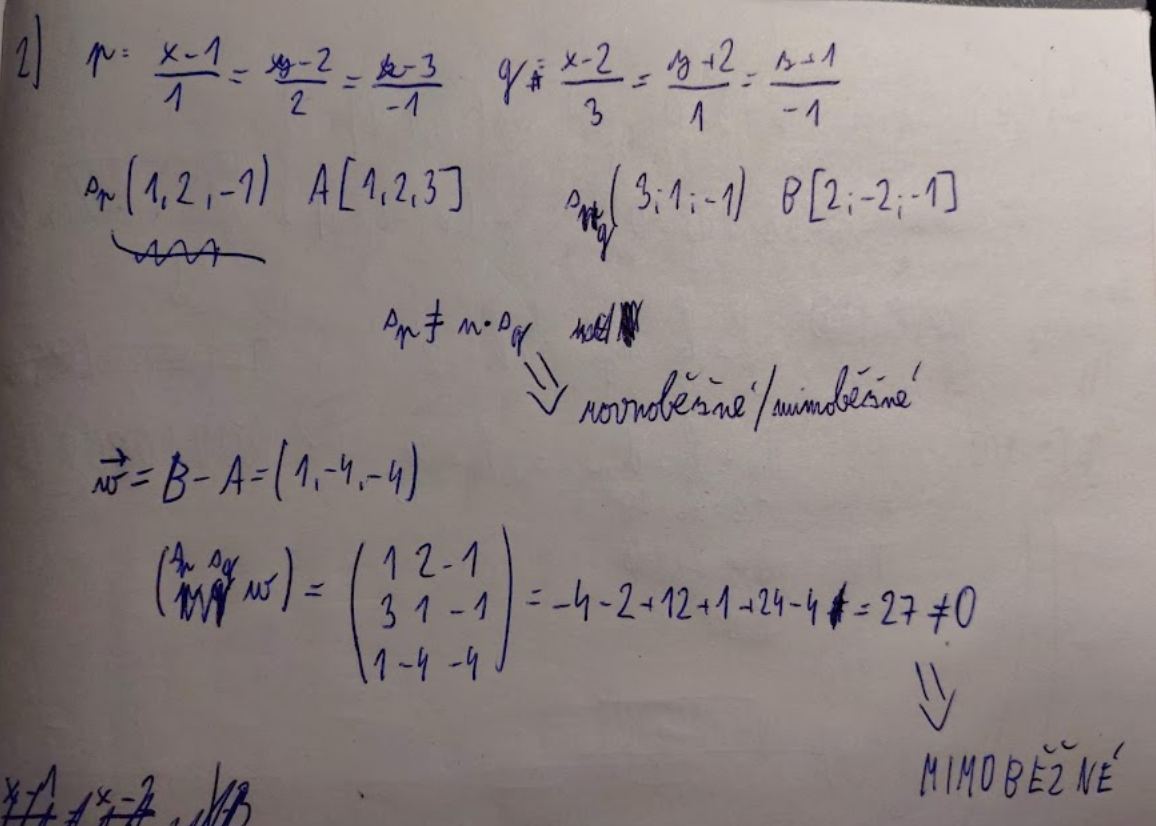 2) p: x-1/1 = y-2/2 = z-3/-1 q: x-2/3 = y+2/1 = z+1/-1
s_p(1,2,-1) A[1,2,3] s_q(3;1;-1) B[2;-2;-1]
s_p ≠ n·s_q
⇓ rovnoběžné/mimoběžné
w⃗ = B - A = (1,-4,-4)
(s_p s_q w) = (1 2 -1
3 1 -1
1 -4 -4) = -4-2+12+1+24-4 = 27 ≠ 0
⇓
MIMOBĚŽNÉ